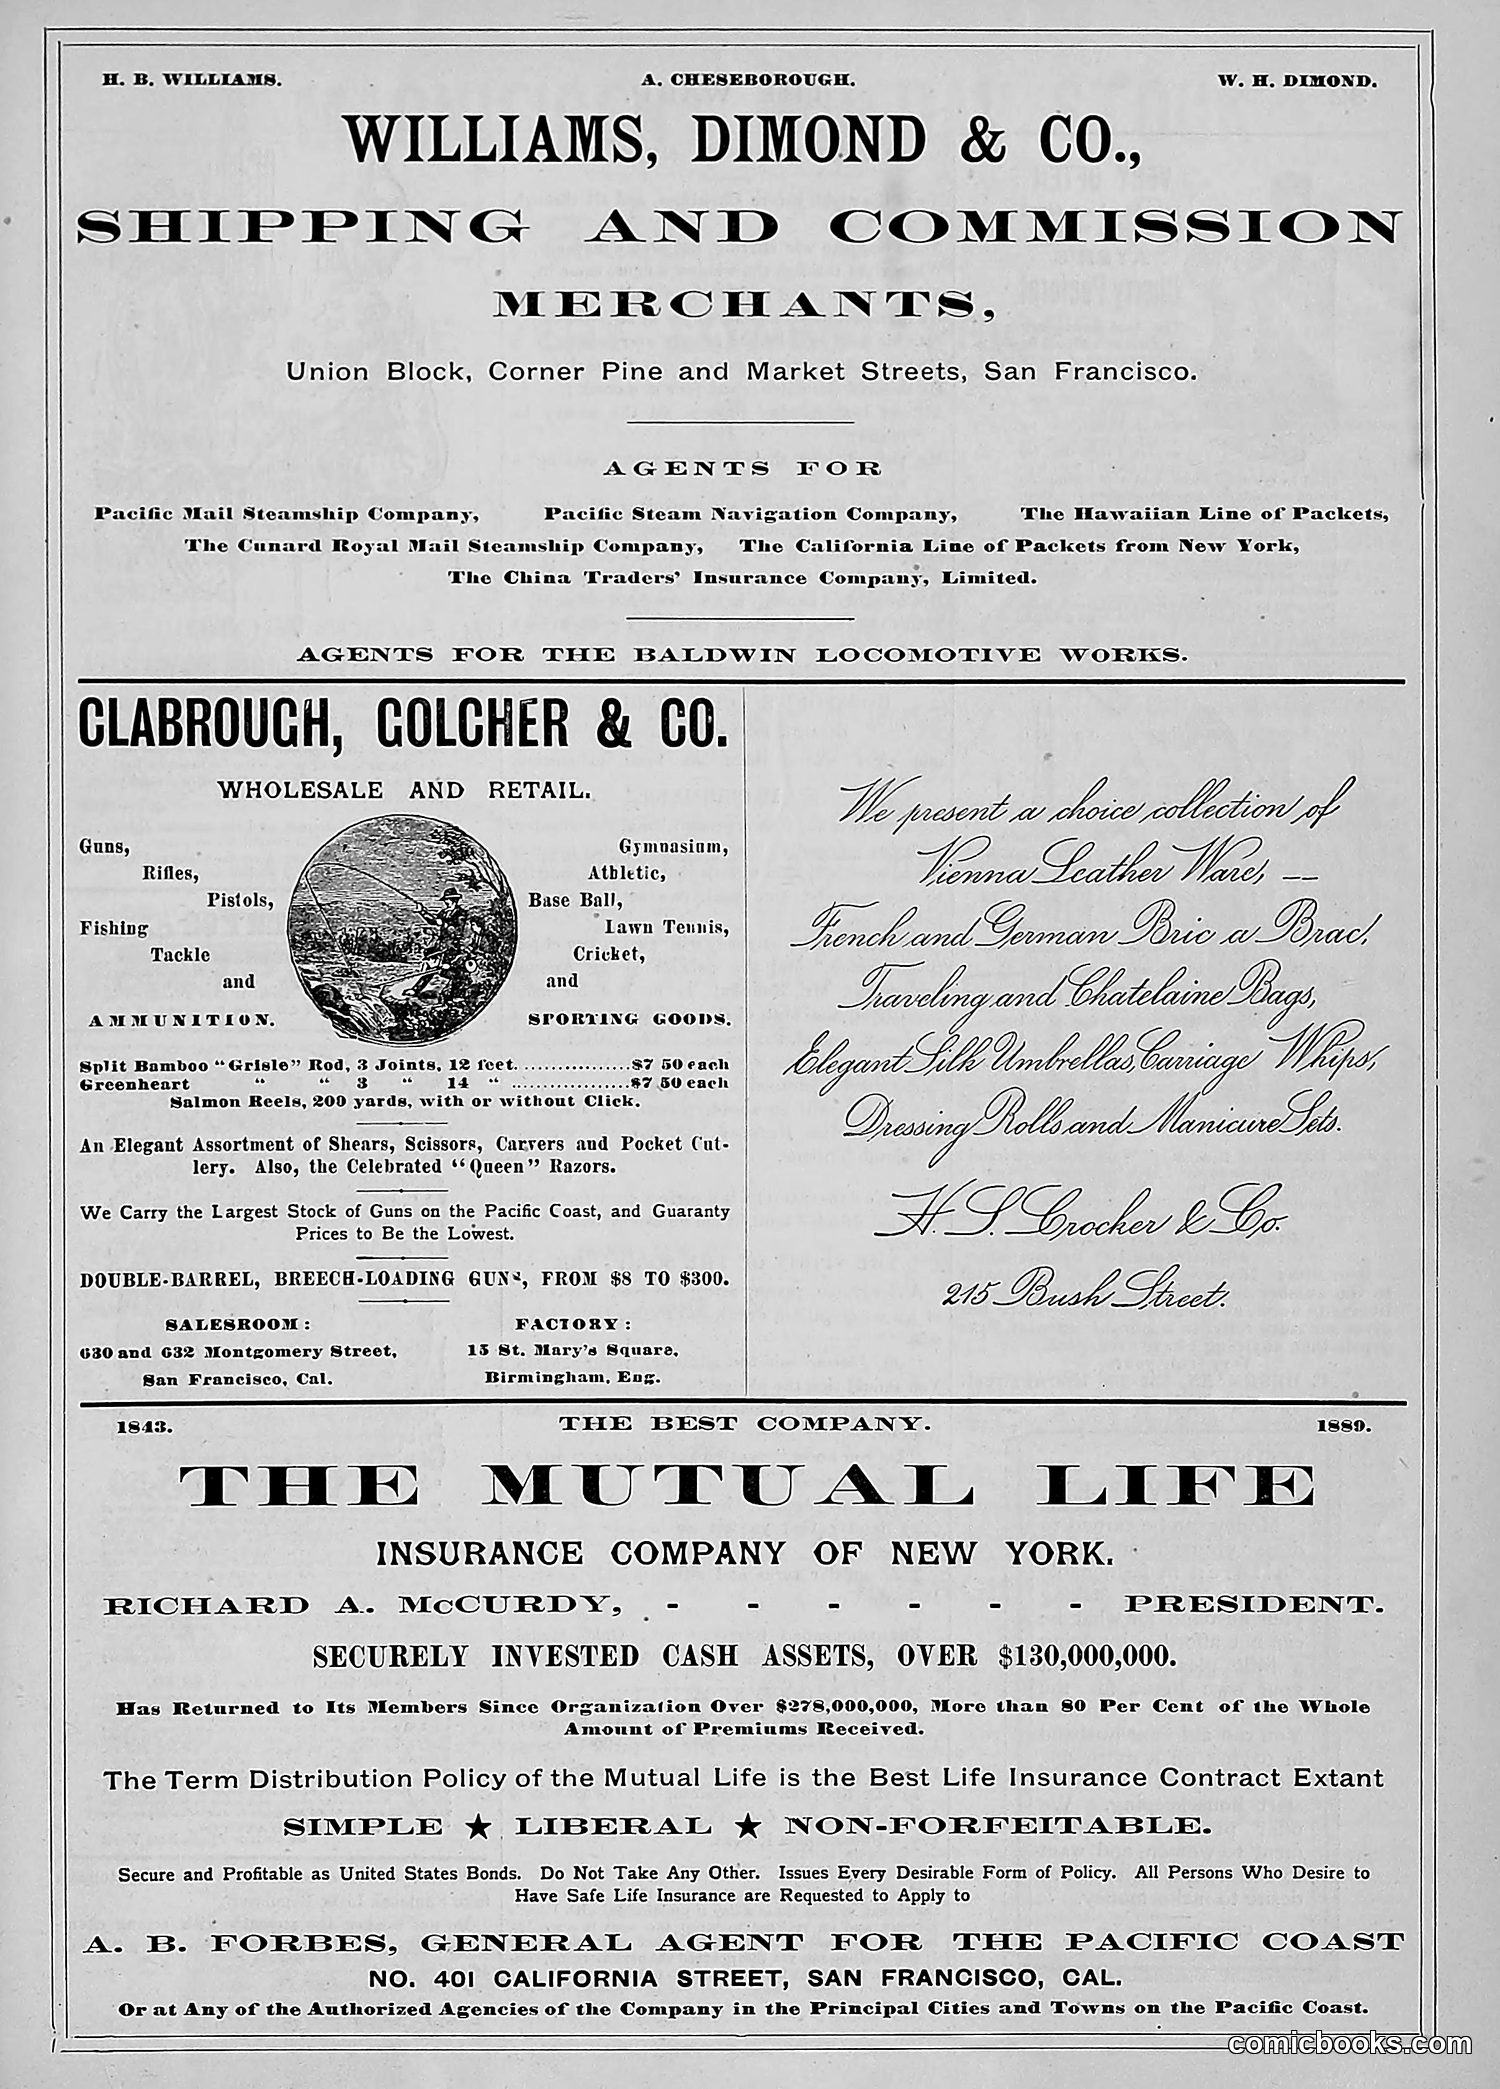 H. B. WILLIAMS. A. CHESEBOROUGH. W. H. DIMOND.
WILLIAMS, DIMOND & CO.,
SHIPPING AND COMMISSION
MERCHANTS,
Union Block, Corner Pine and Market Streets, San Francisco.
AGENTS FOR
Pacific Mail Steamship Company, Pacific Steam Navigation Company, The Hawaiian Line of Packets,
The Cunard Royal Mail Steamship Company, The California Line of Packets from New York,
The China Traders' Insurance Company, Limited.
AGENTS FOR THE BALDWIN LOCOMOTIVE WORKS.
CLABROUGH, GOLCHER & CO.
WHOLESALE AND RETAIL.
Guns,
Rifles,
Pistols,
Fishing
Tackle
and
AMMUNITION.
Gymnasium,
Athletic,
Base Ball,
Lawn Tennis,
Cricket,
and
SPORTING GOODS.
Split Bamboo "Grisle" Rod, 3 Joints, 12 feet. ................$7 50 each
Greenheart " " 3 " 14 " .................$7 50 each
Salmon Reels, 200 yards, with or without Click.
An Elegant Assortment of Shears, Scissors, Carvers and Pocket Cut-
lery. Also, the Celebrated "Queen" Razors.
We Carry the Largest Stock of Guns on the Pacific Coast, and Guaranty
Prices to Be the Lowest.
DOUBLE-BARREL, BREECH-LOADING GUNS, FROM $8 TO $300.
SALESROOM:
630 and 632 Montgomery Street,
San Francisco, Cal.
FACTORY:
15 St. Mary's Square,
Birmingham, Eng.
We present a choice collection of
Vienna Leather Ware, —
French and German Bric a Brac,
Traveling and Chatelaine Bags,
Elegant Silk Umbrellas, Carriage Whips,
Dressing Rolls and Manicure Sets.
H. S. Crocker & Co.
215 Bush Street.
1843. THE BEST COMPANY. 1889.
THE MUTUAL LIFE
INSURANCE COMPANY OF NEW YORK.
RICHARD A. McCURDY, - - - - - - PRESIDENT.
SECURELY INVESTED CASH ASSETS, OVER $130,000,000.
Has Returned to Its Members Since Organization Over $278,000,000, More than 80 Per Cent of the Whole
Amount of Premiums Received.
The Term Distribution Policy of the Mutual Life is the Best Life Insurance Contract Extant
SIMPLE ★ LIBERAL ★ NON-FORFEITABLE.
Secure and Profitable as United States Bonds. Do Not Take Any Other. Issues Every Desirable Form of Policy. All Persons Who Desire to
Have Safe Life Insurance are Requested to Apply to
A. B. FORBES, GENERAL AGENT FOR THE PACIFIC COAST
NO. 401 CALIFORNIA STREET, SAN FRANCISCO, CAL.
Or at Any of the Authorized Agencies of the Company in the Principal Cities and Towns on the Pacific Coast.
comicbooks.com